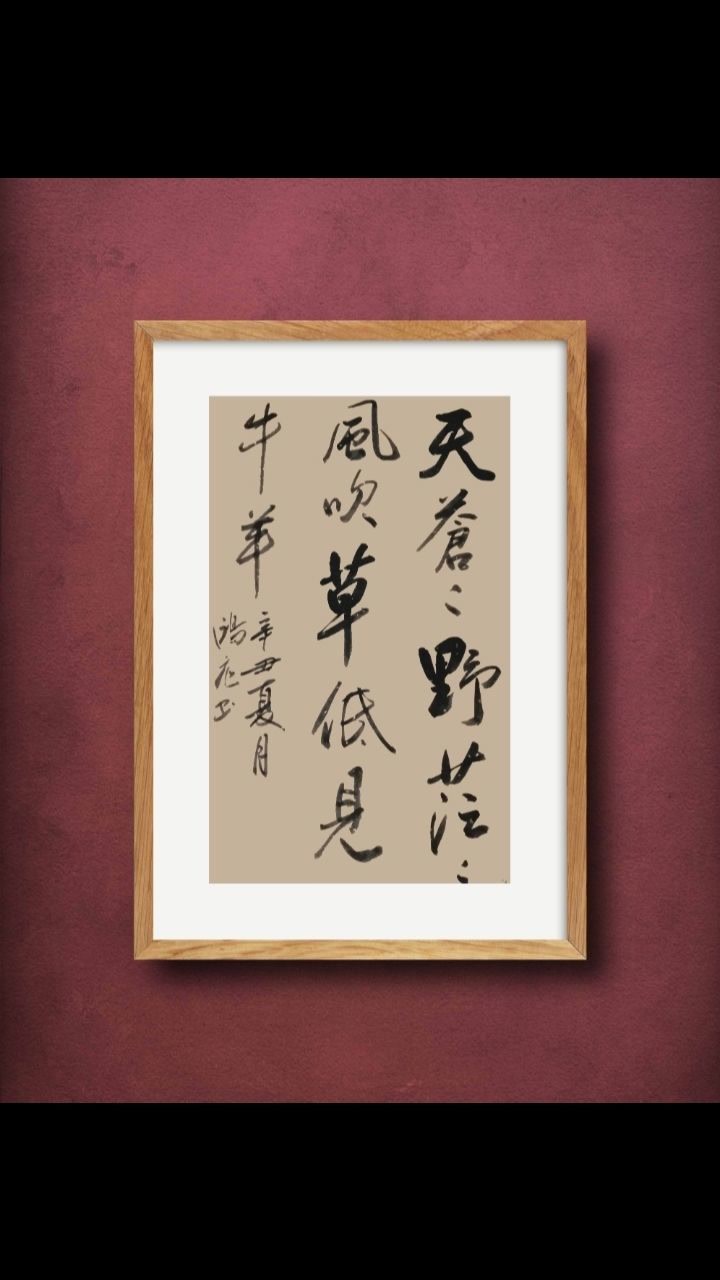 天蒼〻野茫〻
風吹草低見
牛羊
辛丑夏月